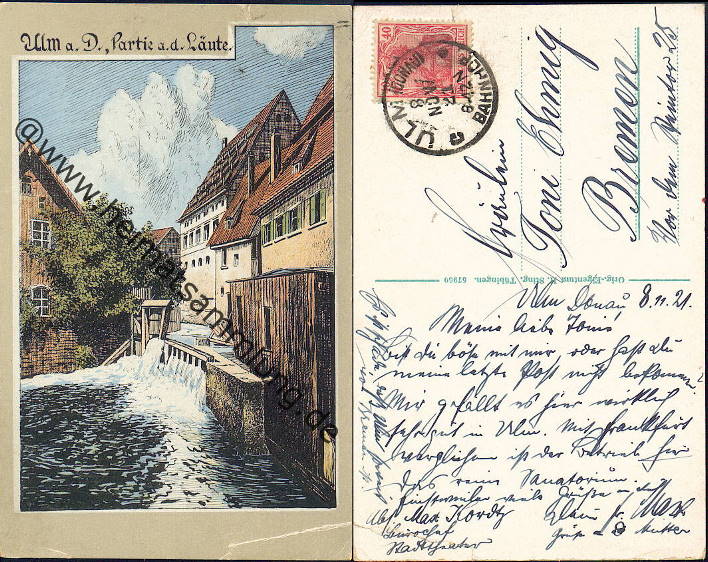 Ulm a. D., Partie a. d. Läute.
@www.heimatsammlung.de
40
ULM
BAHNHOF
8 NOV 21
Fräulein
Toni Ehmig
Bremen
Vor dem Steintor 25
Orig.-Eigentum E. Sting, Tübingen. 67960
Ulm Donau 8.11.21.
Meine liebe Toni!
Bist du böse mit mir, oder hast du
meine letzte Post nicht bekommen?
Mir gefällt es hier wirklich
sehr gut in Ulm. Mit Frankfurt
verglichen ist der Betrieb hier
das reine Sanatorium.
Einstweilen viele Grüße
Dein Max
Abs. Max Kordtz
Bürochef
Stadttheater
Mutter